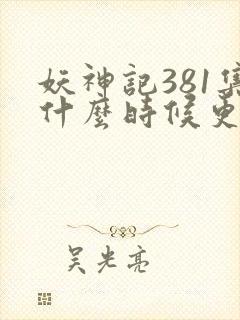 妖神記381集
什麼時候更
吴光亮